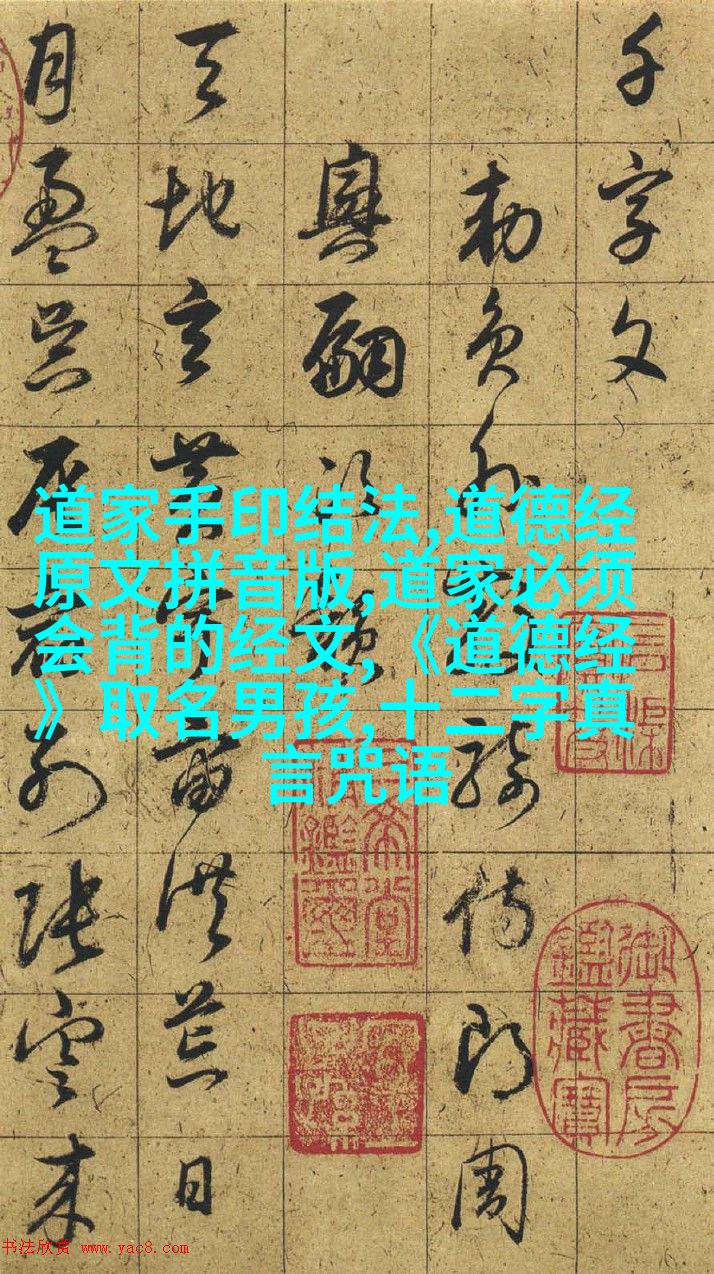 千字文
勅員外散騎侍郎周
興嗣次韻
天地玄黃宇宙洪荒日
月盈昃辰宿列張寒来
道家手印结法,道德经
原文拼音版,道家必须
会背的经文,《道德经
》取名男孩,十二字真
言咒语
御書房
鑑藏寶
书法欣赏 www.yac8.com